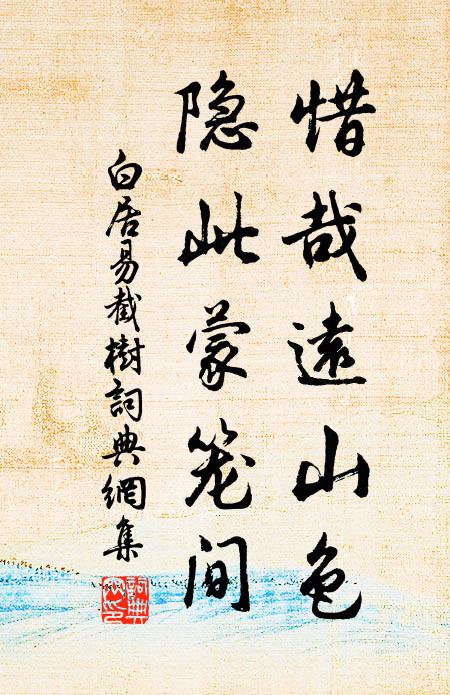 惜哉遠山色
隐此蒙笼间
白居易截樹詞典網集